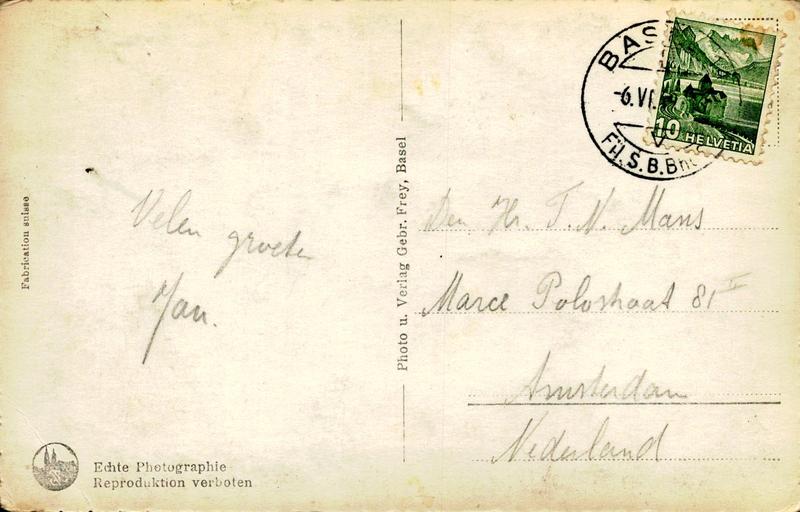 Fabrication suisse
Velen groeten
Jan.
Echte Photographie
Reproduktion verboten
Photo u. Verlag Gebr. Frey, Basel
BAS
-6.VI.
FH.S.B.Bh
10 HELVETIA
Den Hr. T. N. Mans
Marco Polostraat 81 II
Amsterdam
Nederland